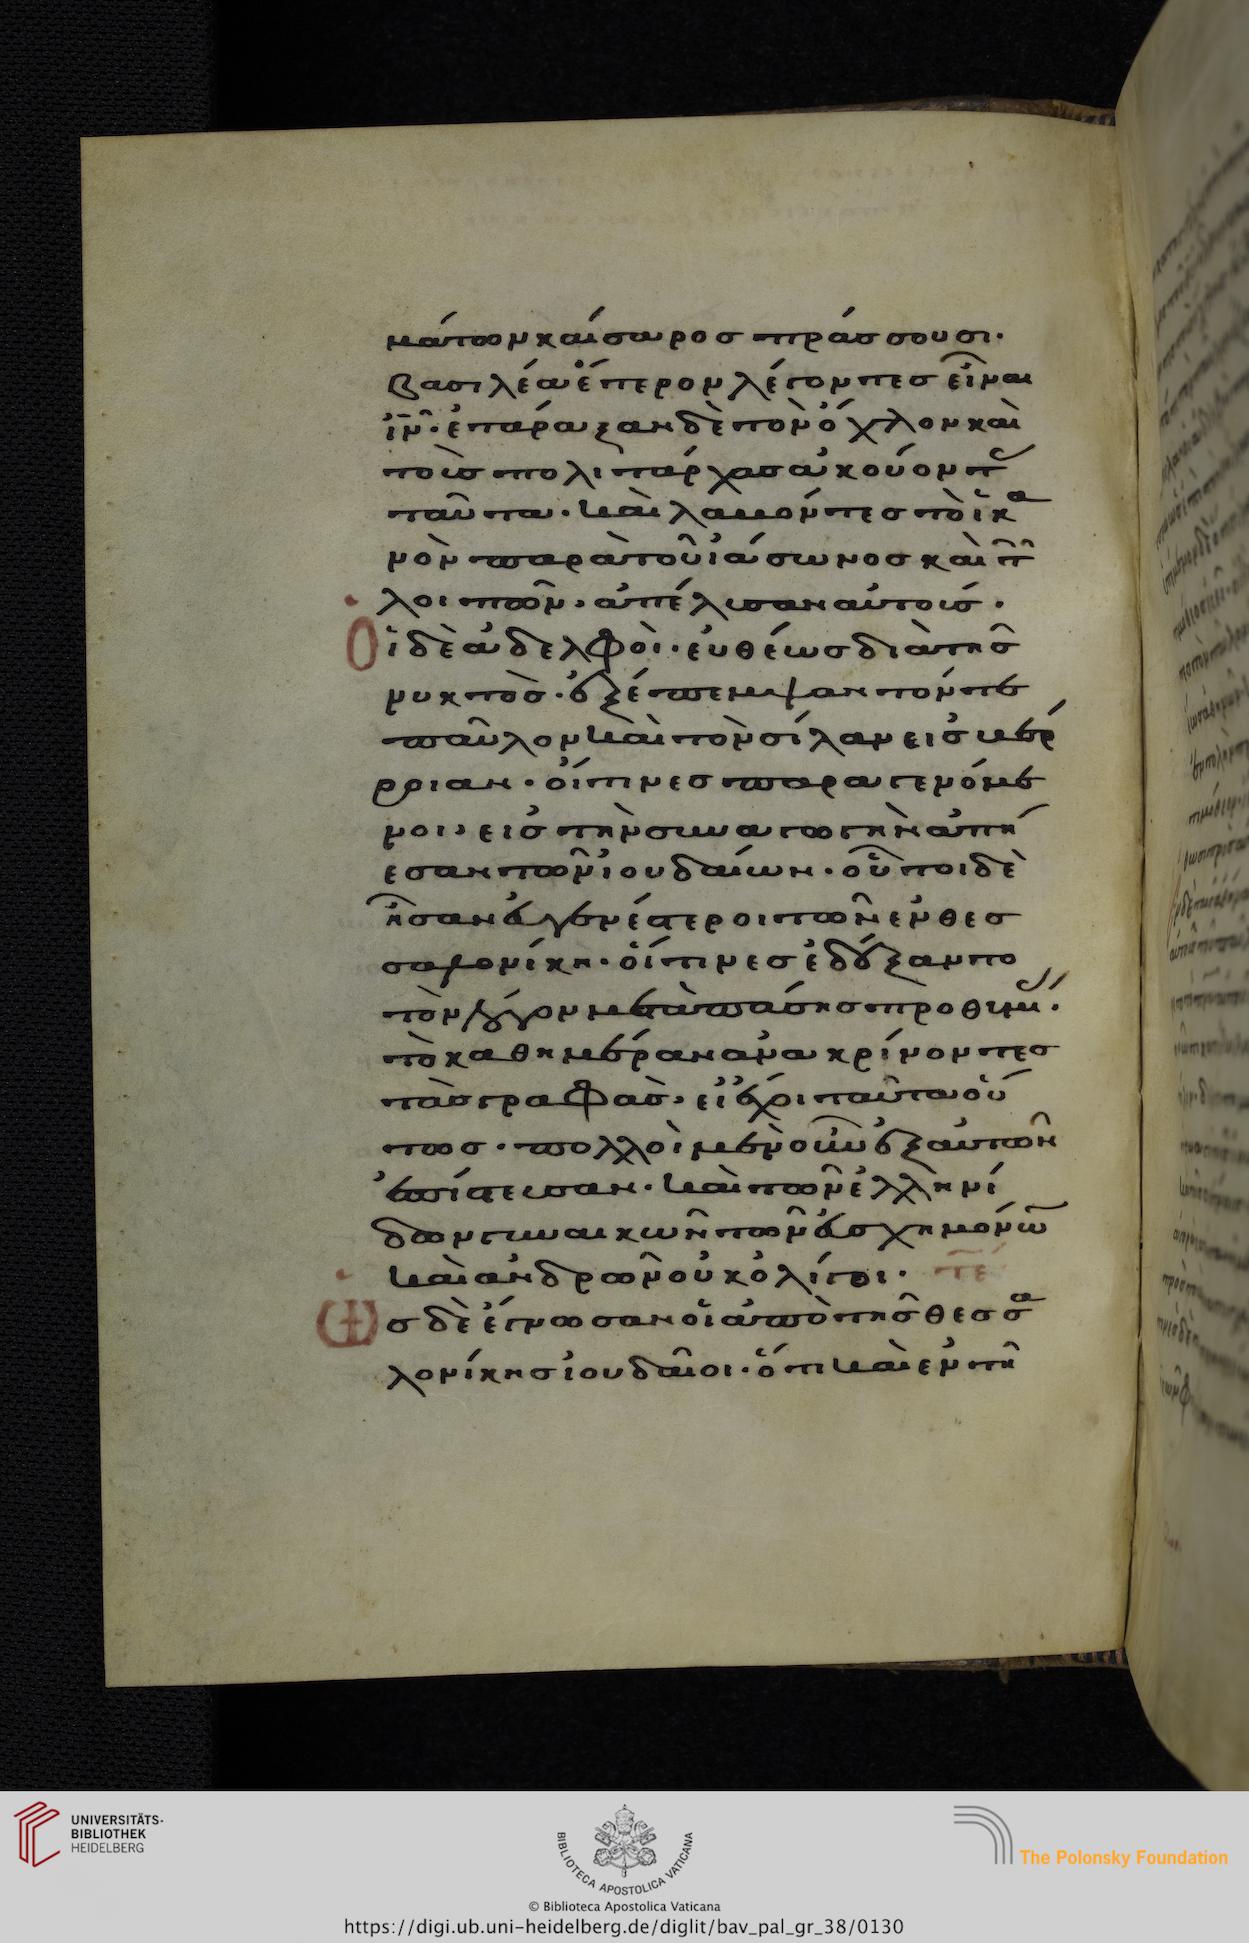 μάτων καίσαρος πράσσουσι·
βασιλέα ἕτερον λέγοντες εἶναι
ἰν̅· ἐτάραξαν δὲ τὸν ὄχλον καὶ
τοὺς πολιτάρχας ἀκούοντ
ταῦτα· καὶ λαβόντες τὸ ἱκα
νὸν παρὰ τοῦ ἰάσωνος καὶ τῶ
λοιπῶν· ἀπέλυσαν αὐτούς·
Οἱ δὲ ἀδελφοὶ· εὐθέως διὰ τῆς
νυκτὸς· ἐξέπεμψαν τόν τε
παῦλον καὶ τὸν σίλαν εἰς βέρ
ροιαν· οἵτινες παραγενόμε
νοι, εἰς τὴν συναγωγὴν ἀπή
εσαν τῶν ἰουδαίων· οὗτοι δὲ
ἦσαν εὐγενέστεροι τῶν ἐν θεσ
σαλονίκη· οἵτινες ἐδέξαντο
τὸν λόγον μετὰ πάσης προθυμί·
τὸ καθημέραν ἀνακρίνοντες
τὰς γραφὰς· εἰ ἔχοι ταῦτα οὕ
τως· πολλοὶ μὲν οὖν ἐξ αὐτῶν
ἐπίστευσαν· καὶ τῶν ἑλληνί
δων γυναικῶν τῶν εὐσχημόνω
καὶ ἀνδρῶν οὐκ ὀλίγοι· τε
Ὡς δὲ ἔγνωσαν οἱ ἀπὸ τῆς θεσσα
λονίκης ἰουδαῖοι· ὅτι καὶ ἐν τῆ
UNIVERSITÄTS-
BIBLIOTHEK
HEIDELBERG
BIBLIOTECA APOSTOLICA VATICANA
The Polonsky Foundation
© Biblioteca Apostolica Vaticana
https://digi.ub.uni-heidelberg.de/diglit/bav_pal_gr_38/0130